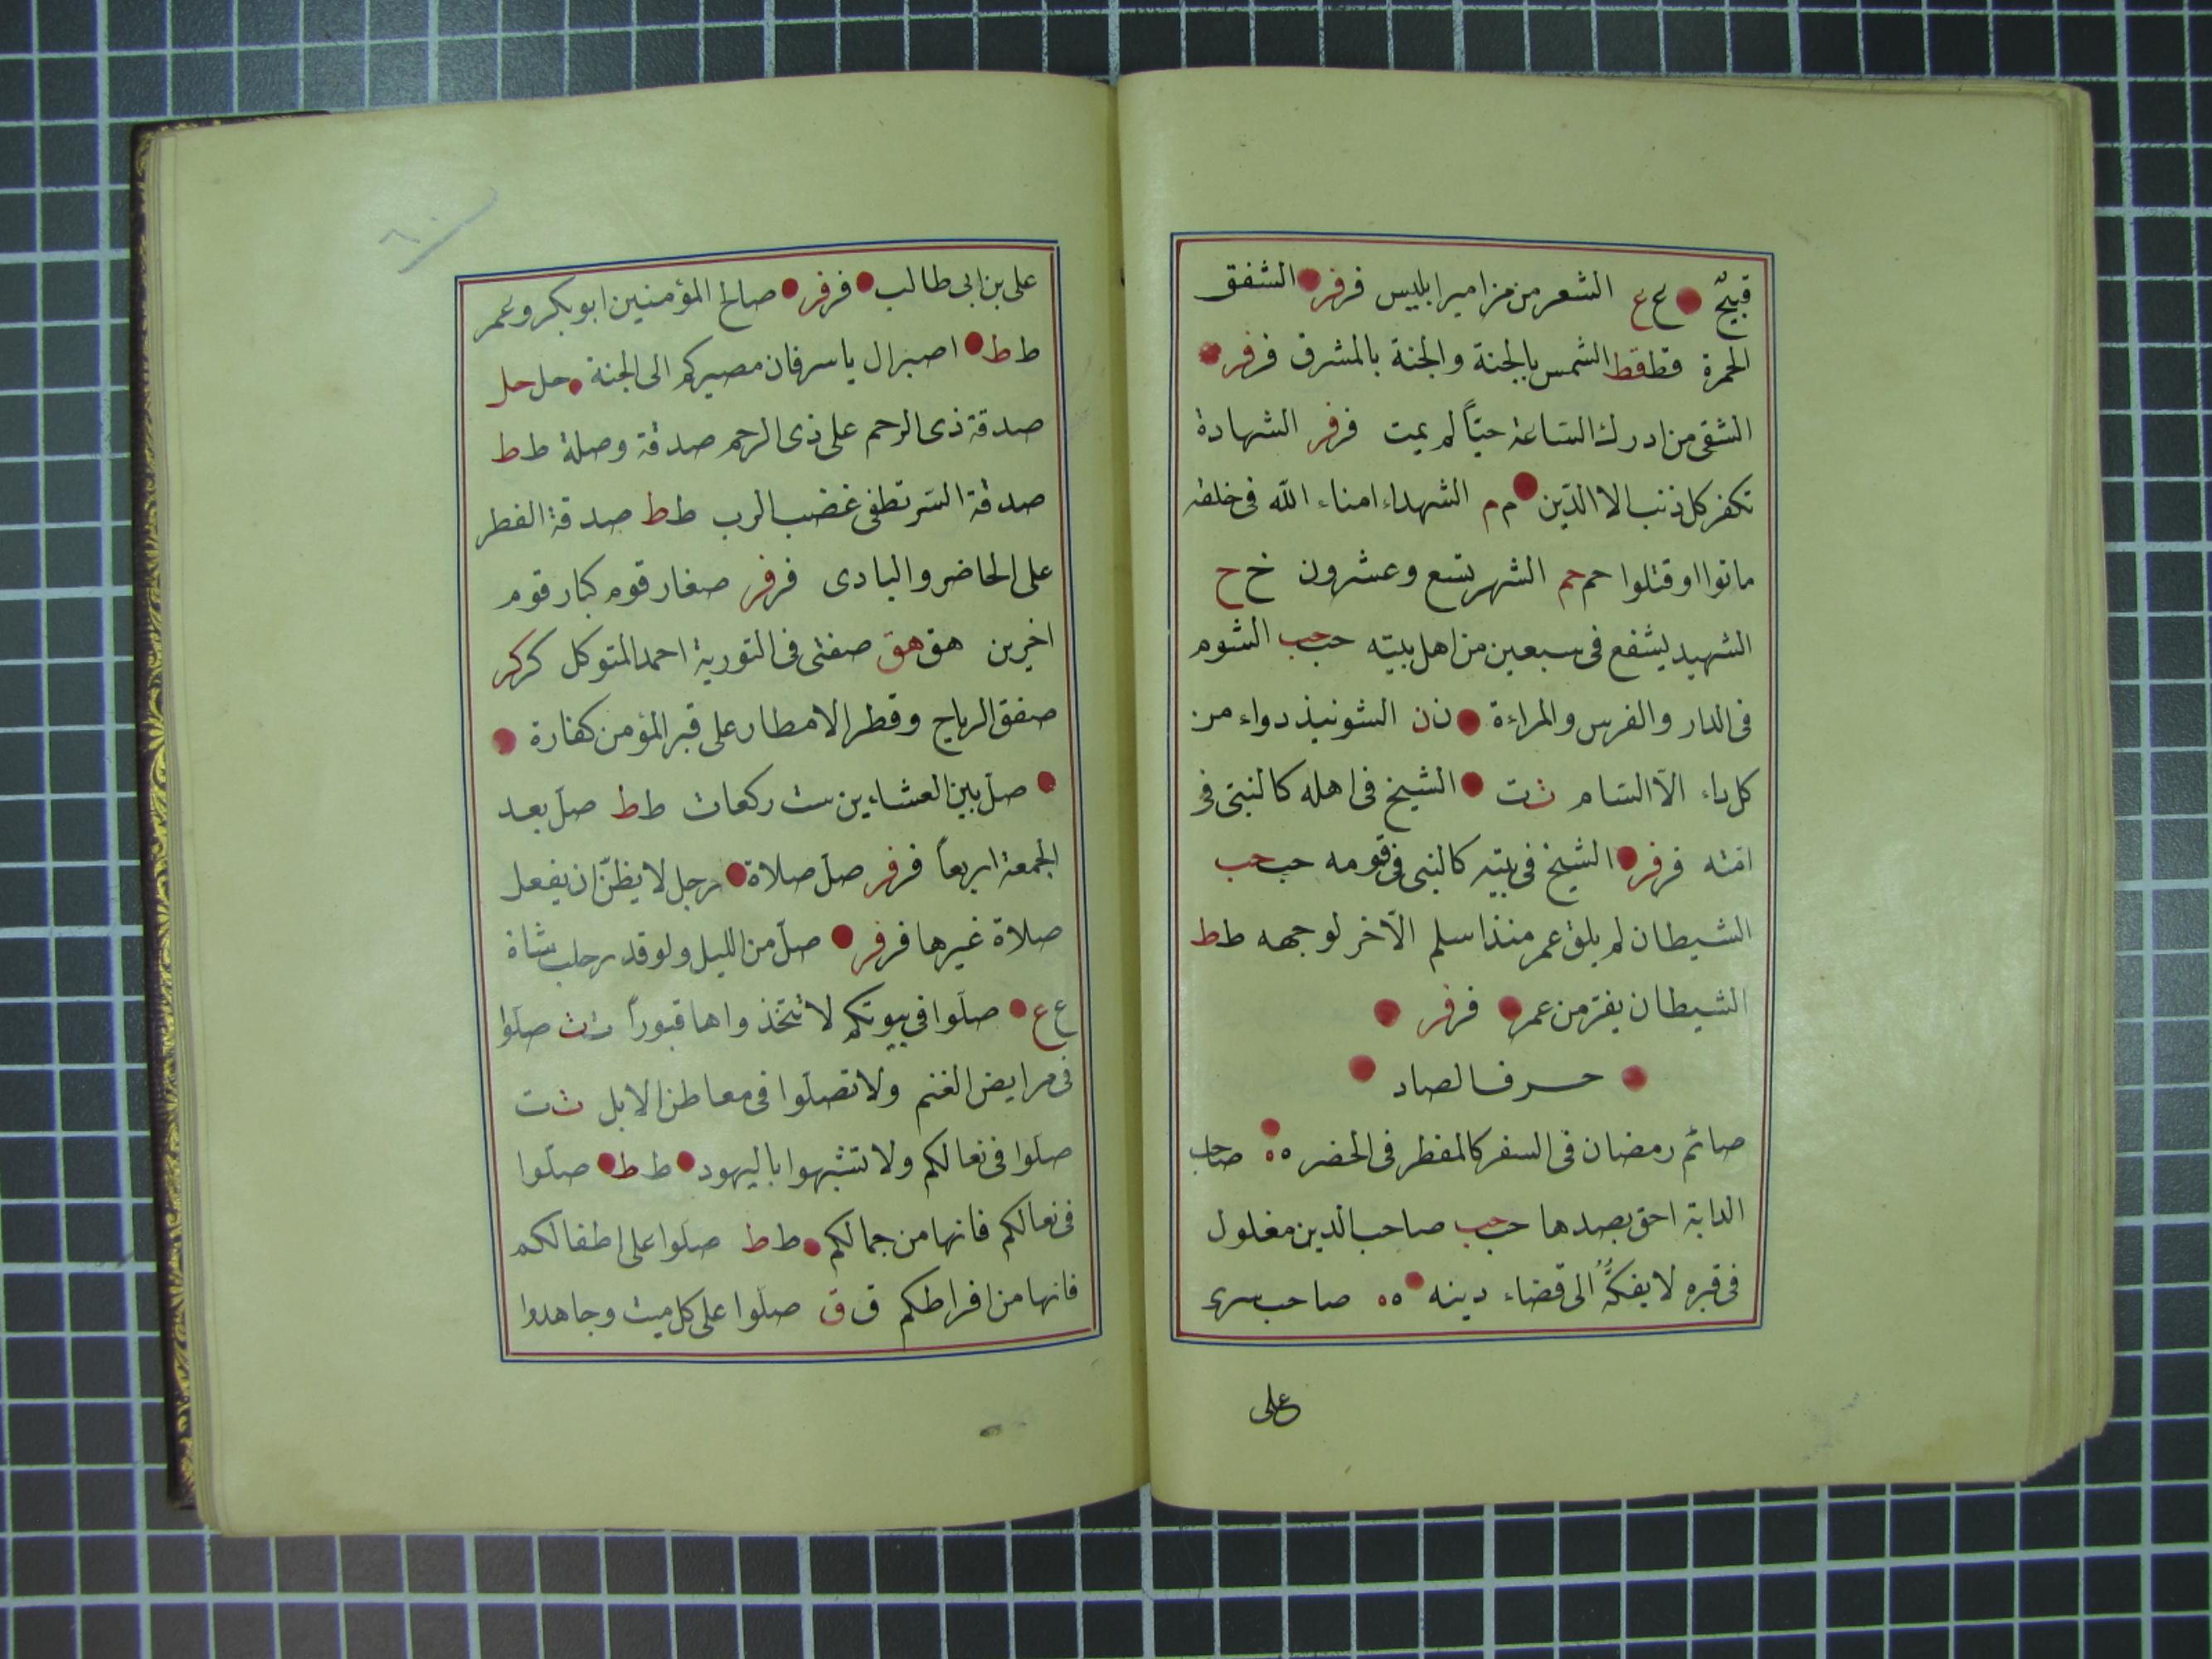 قبيح ع ع الشعر من مزامير ابليس فر فر الشفق
الحمرة قط قط الشمس بالجنة والجنة بالمشرق فر فر
الشقى من ادرك الساعة حيّاً لم يمت فر فر الشهادة
تكفر كل ذنب الا الدّين م م الشهداء امناء الله فى خلقه
ماتوا او قتلوا حم حم الشهر تسع وعشرون خ ح
الشهيد يشفع فى سبعين من اهل بيته حب حب الشوم
فى الدار والفرس والمراءة ن ن الشونيذ دواء من
كل داء الّا السّام ث ت الشيخ فى اهله كالنبىّ فى
امّته فر فر الشيخ فى بيته كالنبى فى قومه حب حب
الشيطان لم يلق عمر منذ اسلم الّا خر لوجهه ط ط
الشيطان يفرّ من عمر فر فر
حرف الصاد
صائم رمضان فى السفر كالمفطر فى الحضر ه ه صاحب
الدابة احق بصدها حب حب صاحب الدين مغلول
فى قبره لا يفكّهُ الى قضاء دينه ه ه صاحب سرى
على
٦٠
على بن ابى طالب فر فر صالح المؤمنين ابو بكر وعمر
ط ط اصبر ال ياسر فان مصيركم الى الجنة حل حل
صدقة ذى الرحم على ذى الرحم صدقة وصلة ط ط
صدقة السّر تطفى غضب الرب ط ط صدقة الفطر
على الحاضر والبادى فر فر صغار قوم كبار قوم
اخرين هق هق صفتى فى التورية احمد المتوكل كر كر
صفق الرياح وقطر الامطار على قبر المؤمن كفارة
صلّ بين العشاءين ست ركعات ط ط صلّ بعد
الجمعة اربعاً فر فر صلّ صلاة رجل لا يظنّ ان يفعل
صلاة غيرها فر فر صلّ من الليل ولو قدر حلب شاة
ع ع صلّوا فى بيوتكم لا تتخذواها قبوراً ت ث صلّوا
فى مرابض الغنم ولا تصلّوا فى معاطن الابل ث ت
صلّوا فى نعالكم ولا تتشبهوا باليهود ط ط صلّوا
فى نعالكم فانها من جمالكم ط ط صلّوا على اطفالكم
فانها من افراطكم ق ق صلّوا على كل ميت وجاهدوا